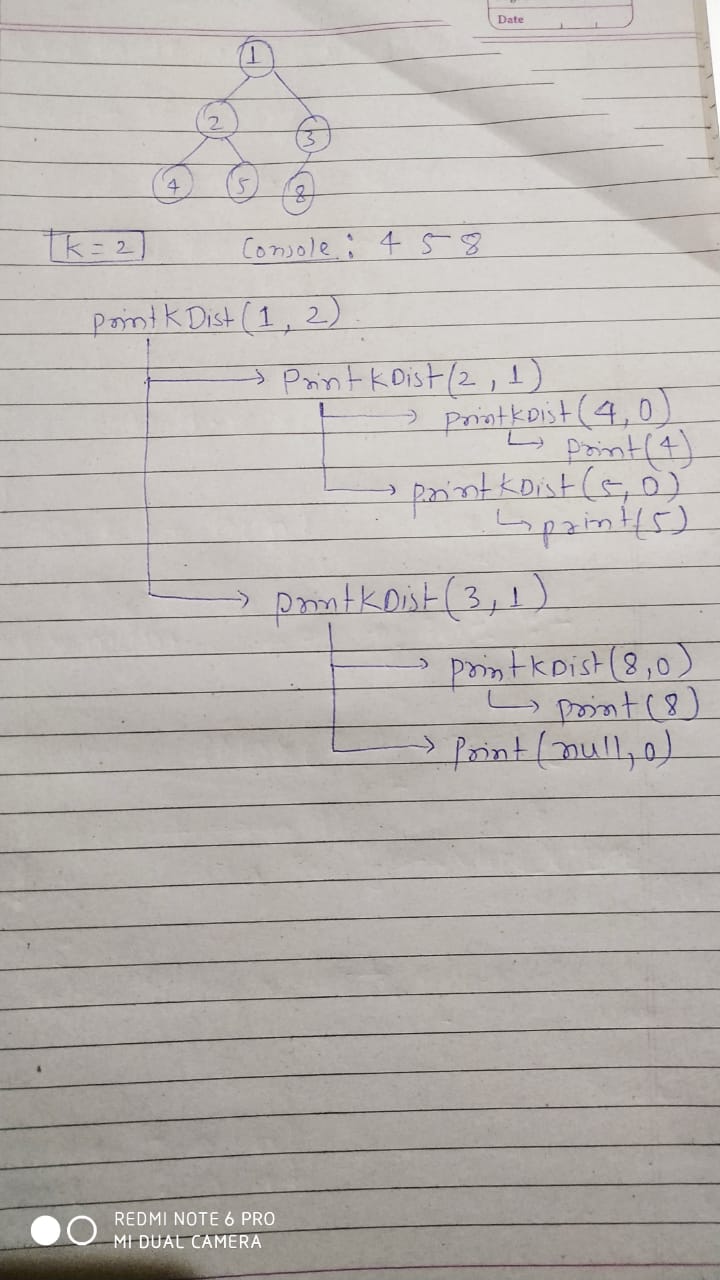 Date
1
2
3
4 5 8
k = 2 Console : 4 5 8
printkDist(1, 2)
PrintkDist(2, 1)
printkDist(4, 0)
print(4)
printkDist(5, 0)
print(5)
printkDist(3, 1)
printkDist(8, 0)
print(8)
Print(null, 0)
REDMI NOTE 6 PRO
MI DUAL CAMERA